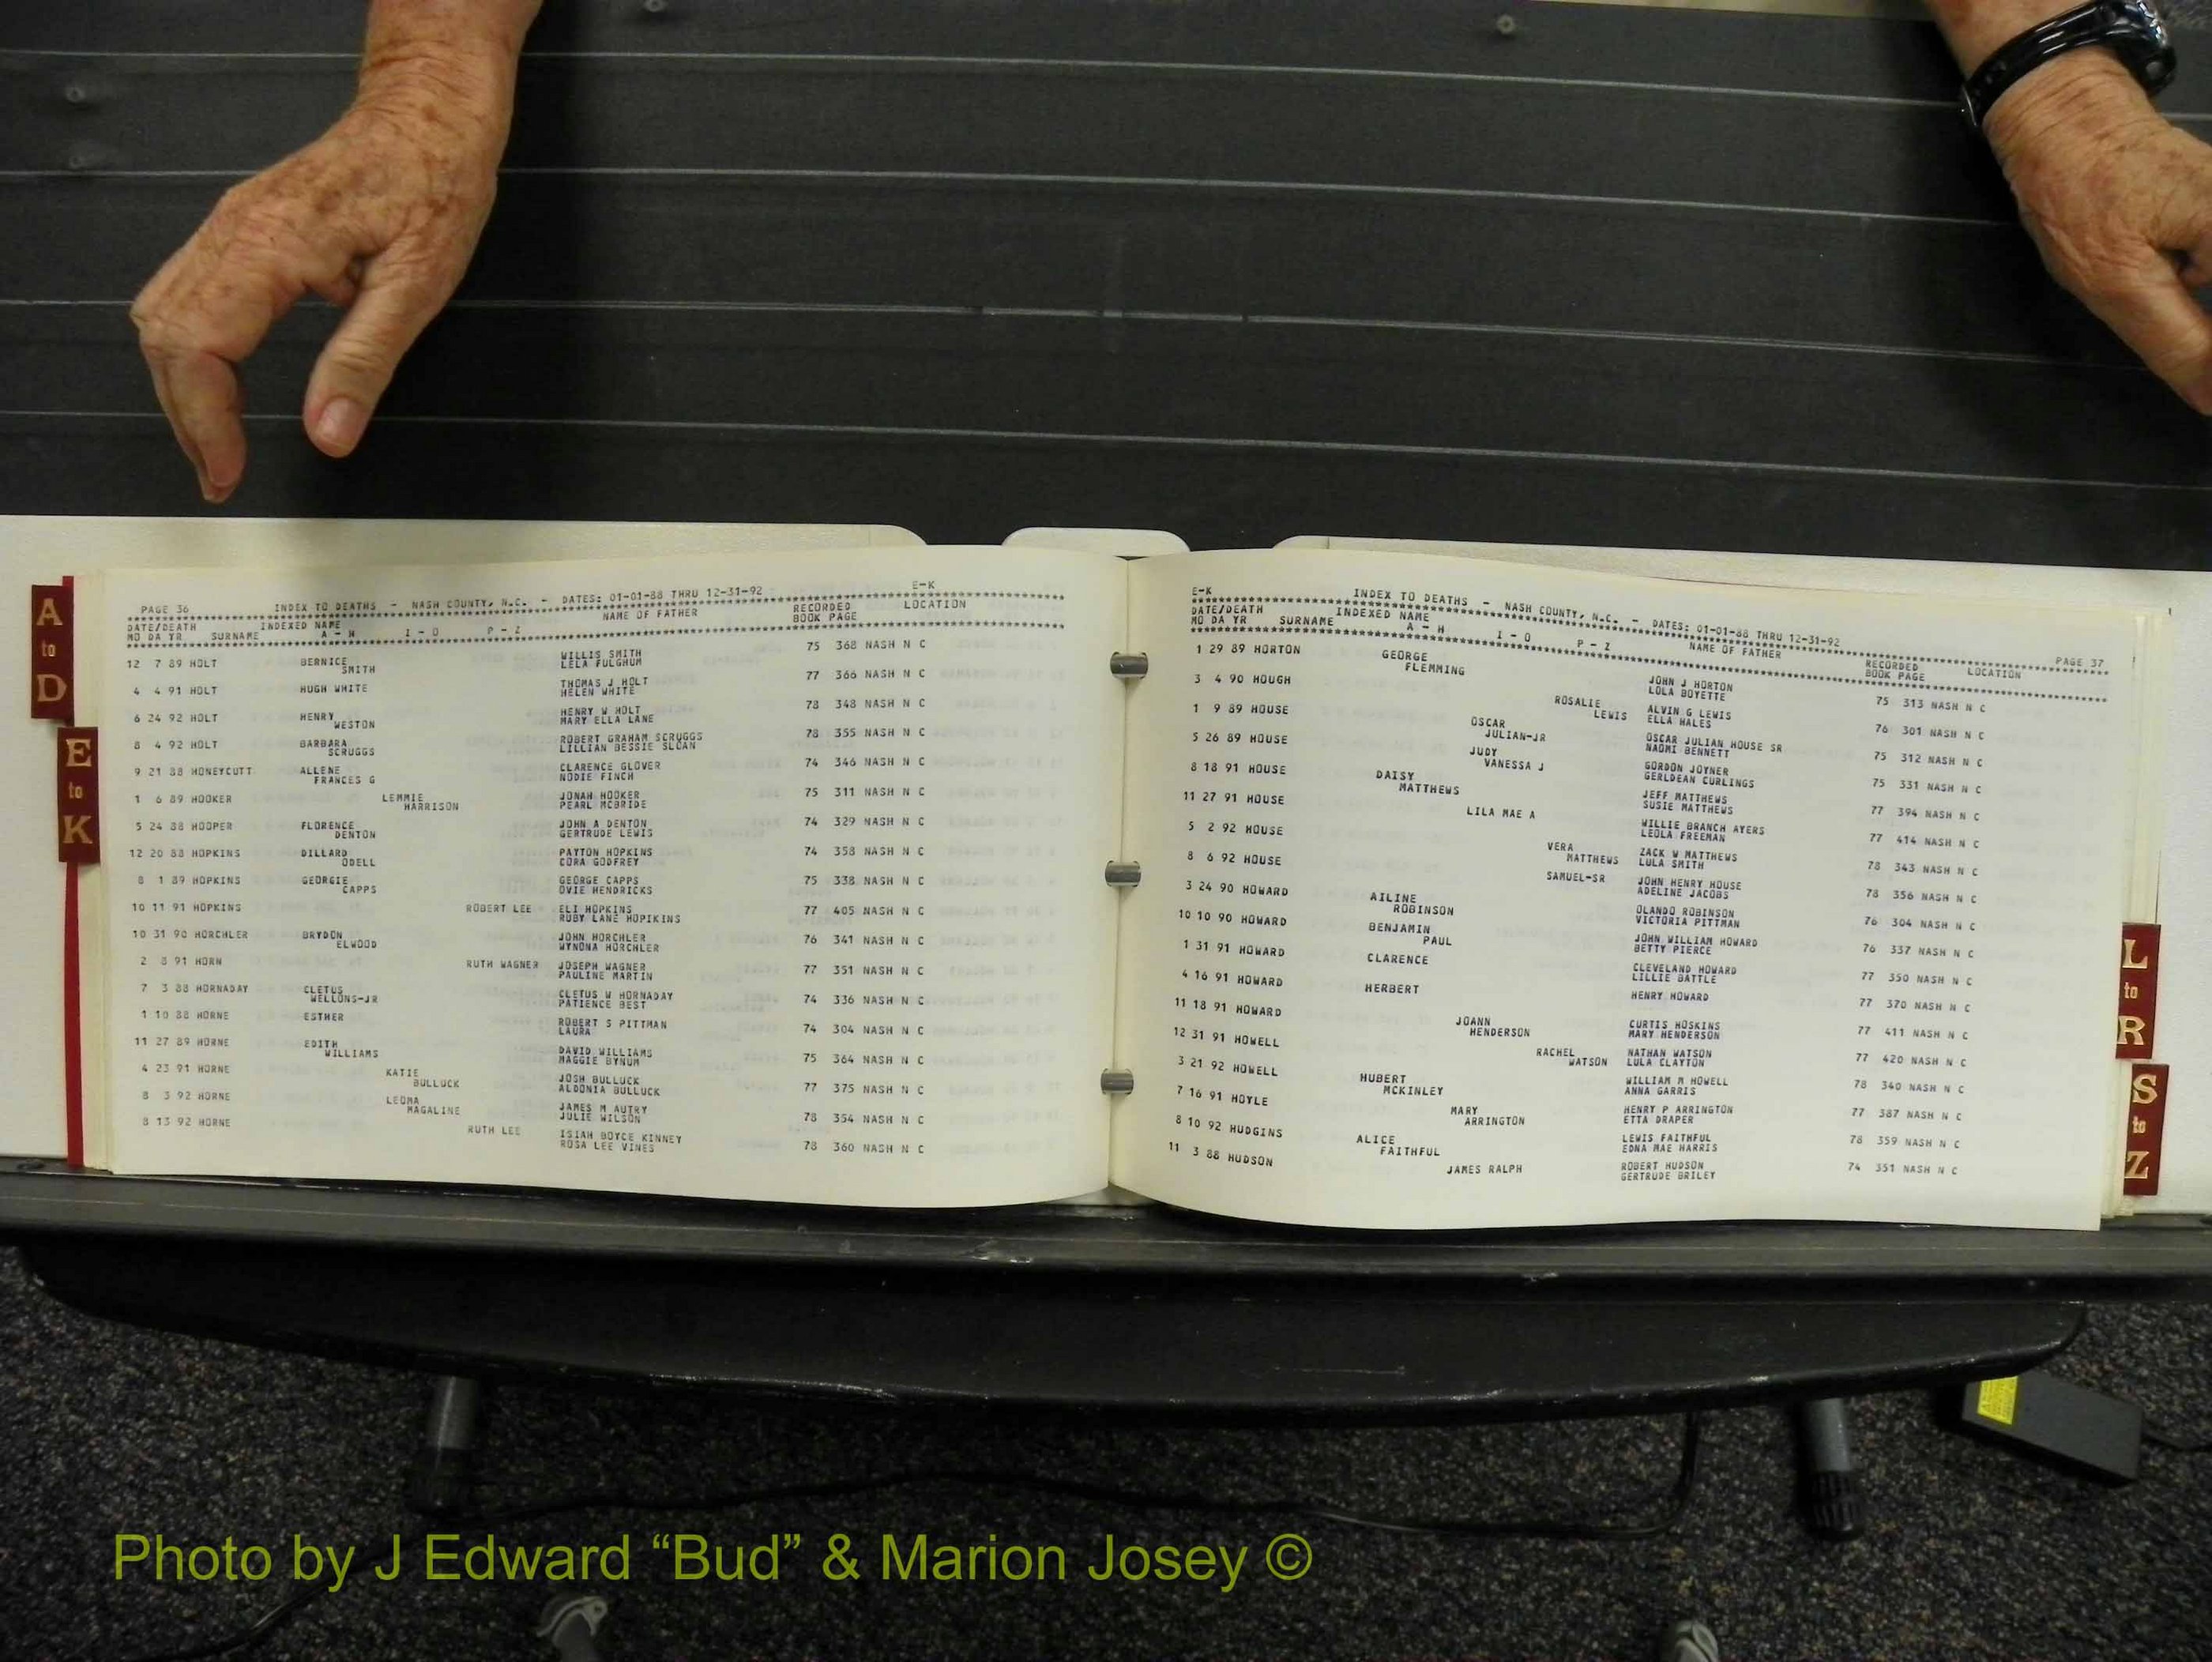 A
to
D
E
to
K
E-K
PAGE 36 INDEX TO DEATHS - NASH COUNTY, N.C. - DATES: 01-01-88 THRU 12-31-92
DATE/DEATH INDEXED NAME NAME OF FATHER RECORDED LOCATION
MO DA YR SURNAME A - H I - O P - Z BOOK PAGE
12 7 89 HOLT BERNICE WILLIS SMITH 75 368 NASH N C
SMITH LELA FULGHUM
4 4 91 HOLT HUGH WHITE THOMAS J HOLT 77 366 NASH N C
HELEN WHITE
6 24 92 HOLT HENRY HENRY W HOLT 78 348 NASH N C
WESTON MARY ELLA LANE
8 4 92 HOLT BARBARA ROBERT GRAHAM SCRUGGS 78 355 NASH N C
SCRUGGS LILLIAN BESSIE SLOAN
9 21 88 HONEYCUTT ALLENE CLARENCE GLOVER 74 346 NASH N C
FRANCES G NODIE FINCH
1 6 89 HOOKER LEMMIE JONAH HOOKER 75 311 NASH N C
HARRISON PEARL MCBRIDE
5 24 88 HOOPER FLORENCE JOHN A DENTON 74 329 NASH N C
DENTON GERTRUDE LEWIS
12 20 88 HOPKINS DILLARD PAYTON HOPKINS 74 358 NASH N C
ODELL CORA GODFREY
8 1 89 HOPKINS GEORGIE GEORGE CAPPS 75 338 NASH N C
CAPPS OVIE HENDRICKS
10 11 91 HOPKINS ROBERT LEE ELI HOPKINS 77 405 NASH N C
RUBY LANE HOPIKINS
10 31 90 HORCHLER BRYDON JOHN HORCHLER 76 341 NASH N C
ELWOOD WYNONA HORCHLER
2 8 91 HORN RUTH WAGNER JOSEPH WAGNER 77 351 NASH N C
PAULINE MARTIN
7 3 88 HORNADAY CLETUS CLETUS W HORNADAY 74 336 NASH N C
WELLONS-JR PATIENCE BEST
1 10 88 HORNE ESTHER ROBERT S PITTMAN 74 304 NASH N C
LAURA
11 27 89 HORNE EDITH DAVID WILLIAMS 75 364 NASH N C
WILLIAMS MAGGIE BYNUM
4 23 91 HORNE KATIE JOSH BULLUCK 77 375 NASH N C
BULLUCK ALDONIA BULLUCK
8 3 92 HORNE LEOMA JAMES M AUTRY 78 354 NASH N C
MAGALINE JULIE WILSON
8 13 92 HORNE RUTH LEE ISIAH BOYCE KINNEY 78 360 NASH N C
ROSA LEE VINES
E-K
INDEX TO DEATHS - NASH COUNTY, N.C. - DATES: 01-01-88 THRU 12-31-92 PAGE 37
DATE/DEATH INDEXED NAME NAME OF FATHER RECORDED LOCATION
MO DA YR SURNAME A - H I - O P - Z BOOK PAGE
1 29 89 HORTON GEORGE JOHN J HORTON 75 313 NASH N C
FLEMMING LOLA BOYETTE
3 4 90 HOUGH ROSALIE ALVIN G LEWIS 76 301 NASH N C
LEWIS ELLA HALES
1 9 89 HOUSE OSCAR OSCAR JULIAN HOUSE SR 75 312 NASH N C
JULIAN-JR NAOMI BENNETT
5 26 89 HOUSE JUDY GORDON JOYNER 75 331 NASH N C
VANESSA J GERLDEAN CURLINGS
8 18 91 HOUSE DAISY JEFF MATTHEWS 77 394 NASH N C
MATTHEWS SUSIE MATTHEWS
11 27 91 HOUSE LILA MAE A WILLIE BRANCH AYERS 77 414 NASH N C
LEOLA FREEMAN
5 2 92 HOUSE VERA ZACK W MATTHEWS 78 343 NASH N C
MATTHEWS LULA SMITH
8 6 92 HOUSE SAMUEL-SR JOHN HENRY HOUSE 78 356 NASH N C
ADELINE JACOBS
3 24 90 HOWARD AILINE OLANDO ROBINSON 76 304 NASH N C
ROBINSON VICTORIA PITTMAN
10 10 90 HOWARD BENJAMIN JOHN WILLIAM HOWARD 76 337 NASH N C
PAUL BETTY PIERCE
1 31 91 HOWARD CLARENCE CLEVELAND HOWARD 77 350 NASH N C
LILLIE BATTLE
4 16 91 HOWARD HERBERT HENRY HOWARD 77 370 NASH N C
11 18 91 HOWARD JOANN CURTIS HOSKINS 77 411 NASH N C
HENDERSON MARY HENDERSON
12 31 91 HOWELL RACHEL NATHAN WATSON 77 420 NASH N C
WATSON LULA CLAYTON
3 21 92 HOWELL HUBERT WILLIAM M HOWELL 78 340 NASH N C
MCKINLEY ANNA GARRIS
7 16 91 HOYLE MARY HENRY P ARRINGTON 77 387 NASH N C
ARRINGTON ETTA DRAPER
8 10 92 HUDGINS ALICE LEWIS FAITHFUL 78 359 NASH N C
FAITHFUL EDNA MAE HARRIS
11 3 88 HUDSON JAMES RALPH ROBERT HUDSON 74 351 NASH N C
GERTRUDE BRILEY
L
to
R
S
to
Z
Photo by J Edward “Bud” & Marion Josey ©